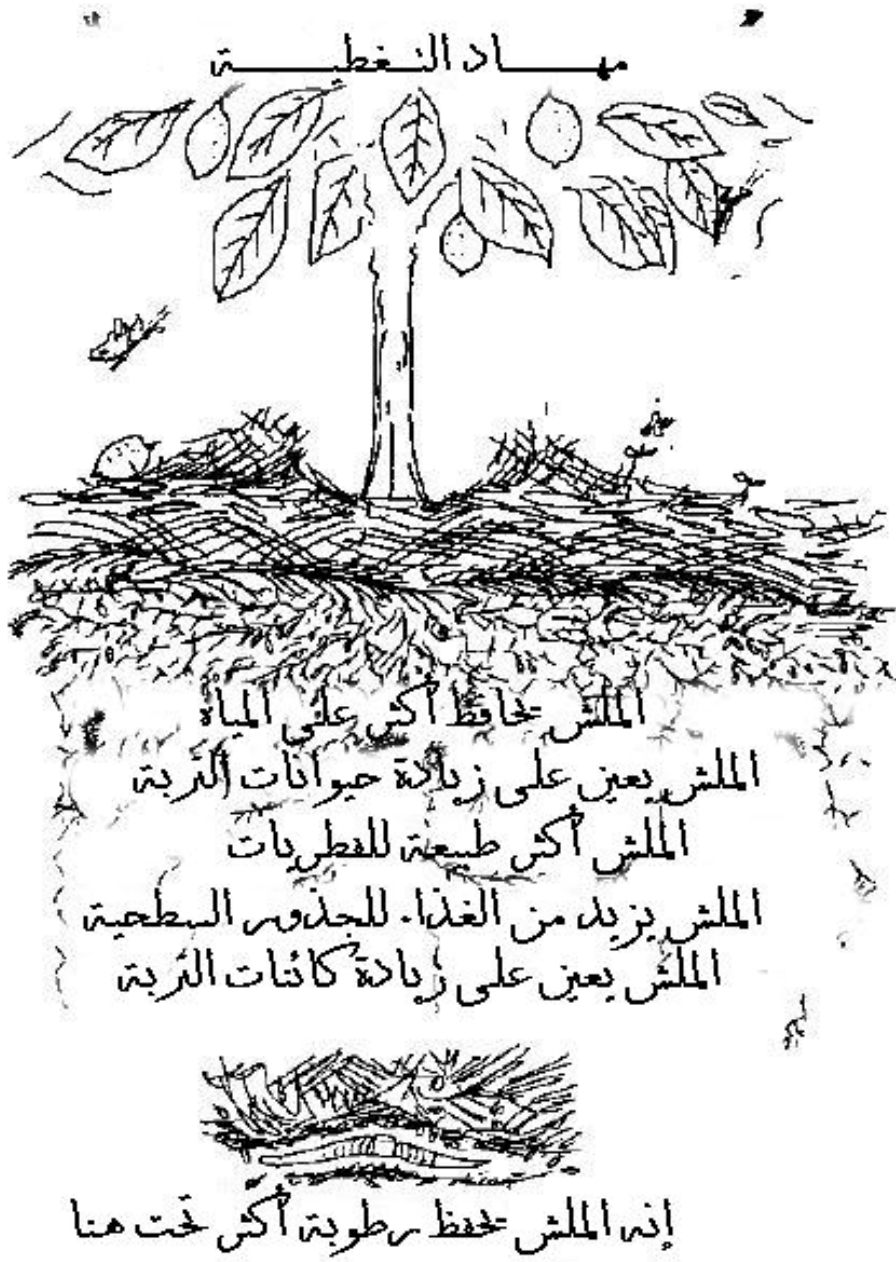 مهاد التغطية
الملش يحافظ أكثر على المياه
الملش يعين على زيادة حيوانات التربة
الملش أكثر طبيعة للفطريات
الملش يزيد من الغذاء للجذور السطحية
الملش يعين على زيادة كائنات التربة
إنه الملش يحفظ رطوبة أكثر تحت هنا